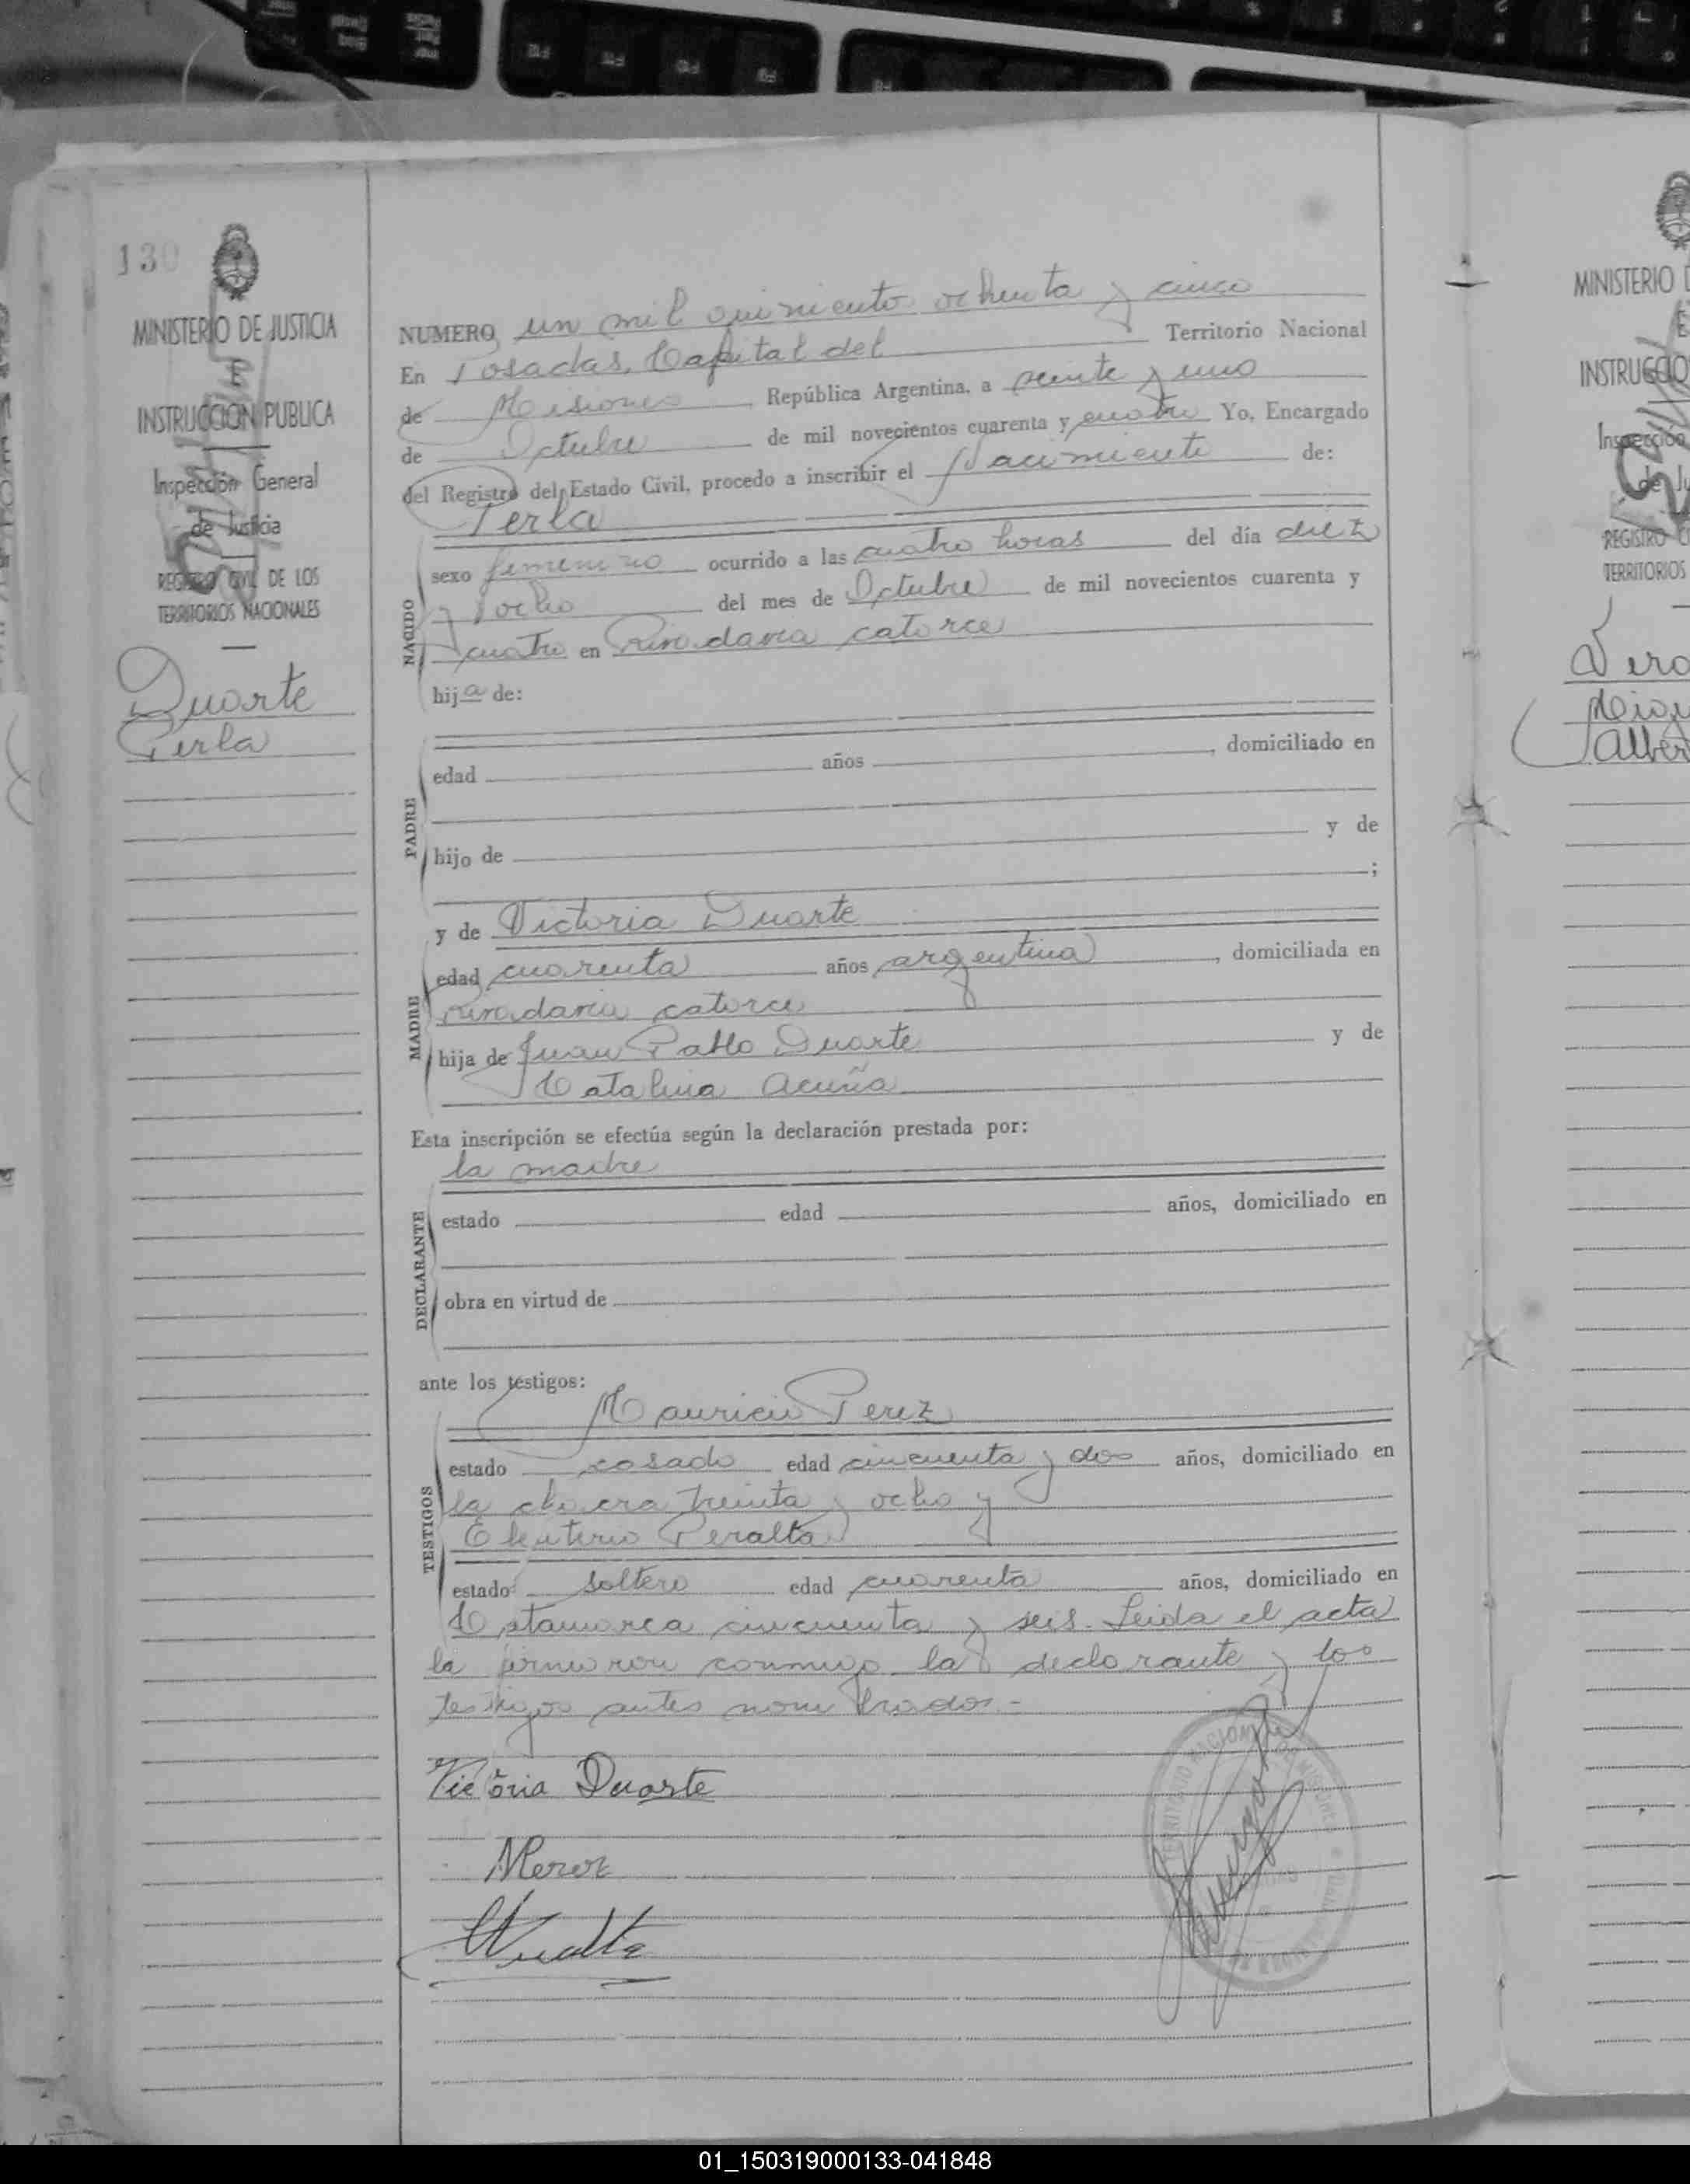 130
MINISTERIO DE JUSTICIA
E
INSTRUCCION PUBLICA
Inspección General
de Justicia
REGISTRO CIVIL DE LOS
TERRITORIOS NACIONALES
Duarte
Perla
NUMERO un mil quiniento ochenta y cinco
En Posadas, Capital del Territorio Nacional
de Misiones República Argentina, a veinte y uno
de Octubre de mil novecientos cuarenta y cuatro Yo, Encargado
del Registro del Estado Civil, procedo a inscribir el Nacimiento de:
Perla
sexo femenino ocurrido a las cuatro horas del día diez
y ocho del mes de Octubre de mil novecientos cuarenta y
cuatro en Rivadavia catorce
NACIDO
hija de:
edad años , domiciliado en
PADRE
hijo de y de
;
y de Victoria Duarte
edad cuarenta años argentina , domiciliada en
rivadavia catorce
MADRE
hija de Juan Pablo Duarte y de
Catalina Acuña
Esta inscripción se efectúa según la declaración prestada por:
la madre
estado edad años, domiciliado en
DECLARANTE
obra en virtud de
ante los testigos:
Mauricio Perez
estado casado edad cincuenta y dos años, domiciliado en
la chacra treinta y ocho y
TESTIGOS
Eleuterio Peralta
estado soltero edad cuarenta años, domiciliado en
Catamarca cincuenta y seis. Leida el acta
la firmaron conmigo la declarante y los
testigos antes nombrados.-
Victoria Duarte
MPerez
TERRITORIO NACIONAL DE MISIONES
MINISTERIO D
INSTRUCCIO
Inspección
de Ju
REGISTRO CI
TERRITORIOS
Alber
01_150319000133-041848